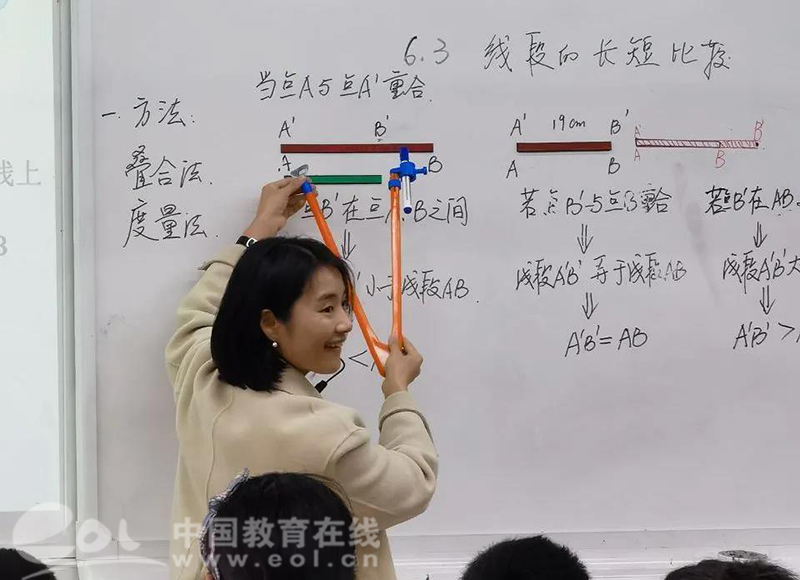 6.3 线段的长短比较
当点A与点A'重合.
一. 方法:
叠合法.
度量法.
A' B'
A B
B'在点A、B之间
⇓
小于线段AB.
<
A' 19cm B'
A B
若点B'与点B重合
⇓
线段A'B'等于线段AB
⇓
A'B'=AB
A' B'
A B B
若点B'在AB
⇓
线段A'B'大
⇓
A'B'>
线上
3
eol 中国教育在线
www.eol.cn